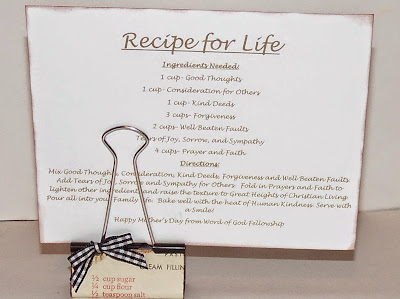 Recipe for Life
Ingredients Needed:
1 cup- Good Thoughts
1 cup- Consideration for Others
1 cup- Kind Deeds
3 cups- Forgiveness
2 cups- Well Beaten Faults
Tears of Joy, Sorrow, and Sympathy
4 cups- Prayer and Faith
Directions:
Mix Good Thoughts, Consideration, Kind Deeds, Forgiveness and Well Beaten Faults.
Add Tears of Joy, Sorrow and Sympathy for Others. Fold in Prayers and Faith to
lighten other ingredient and raise the texture to Great Heights of Christian Living.
Pour all into your Family life. Bake well with the heat of Human Kindness. Serve with
a Smile!
Happy Mother's Day from Word of God Fellowship
CREAM FILLIN
½ cup sugar
¼ cup flour
½ teaspoon salt